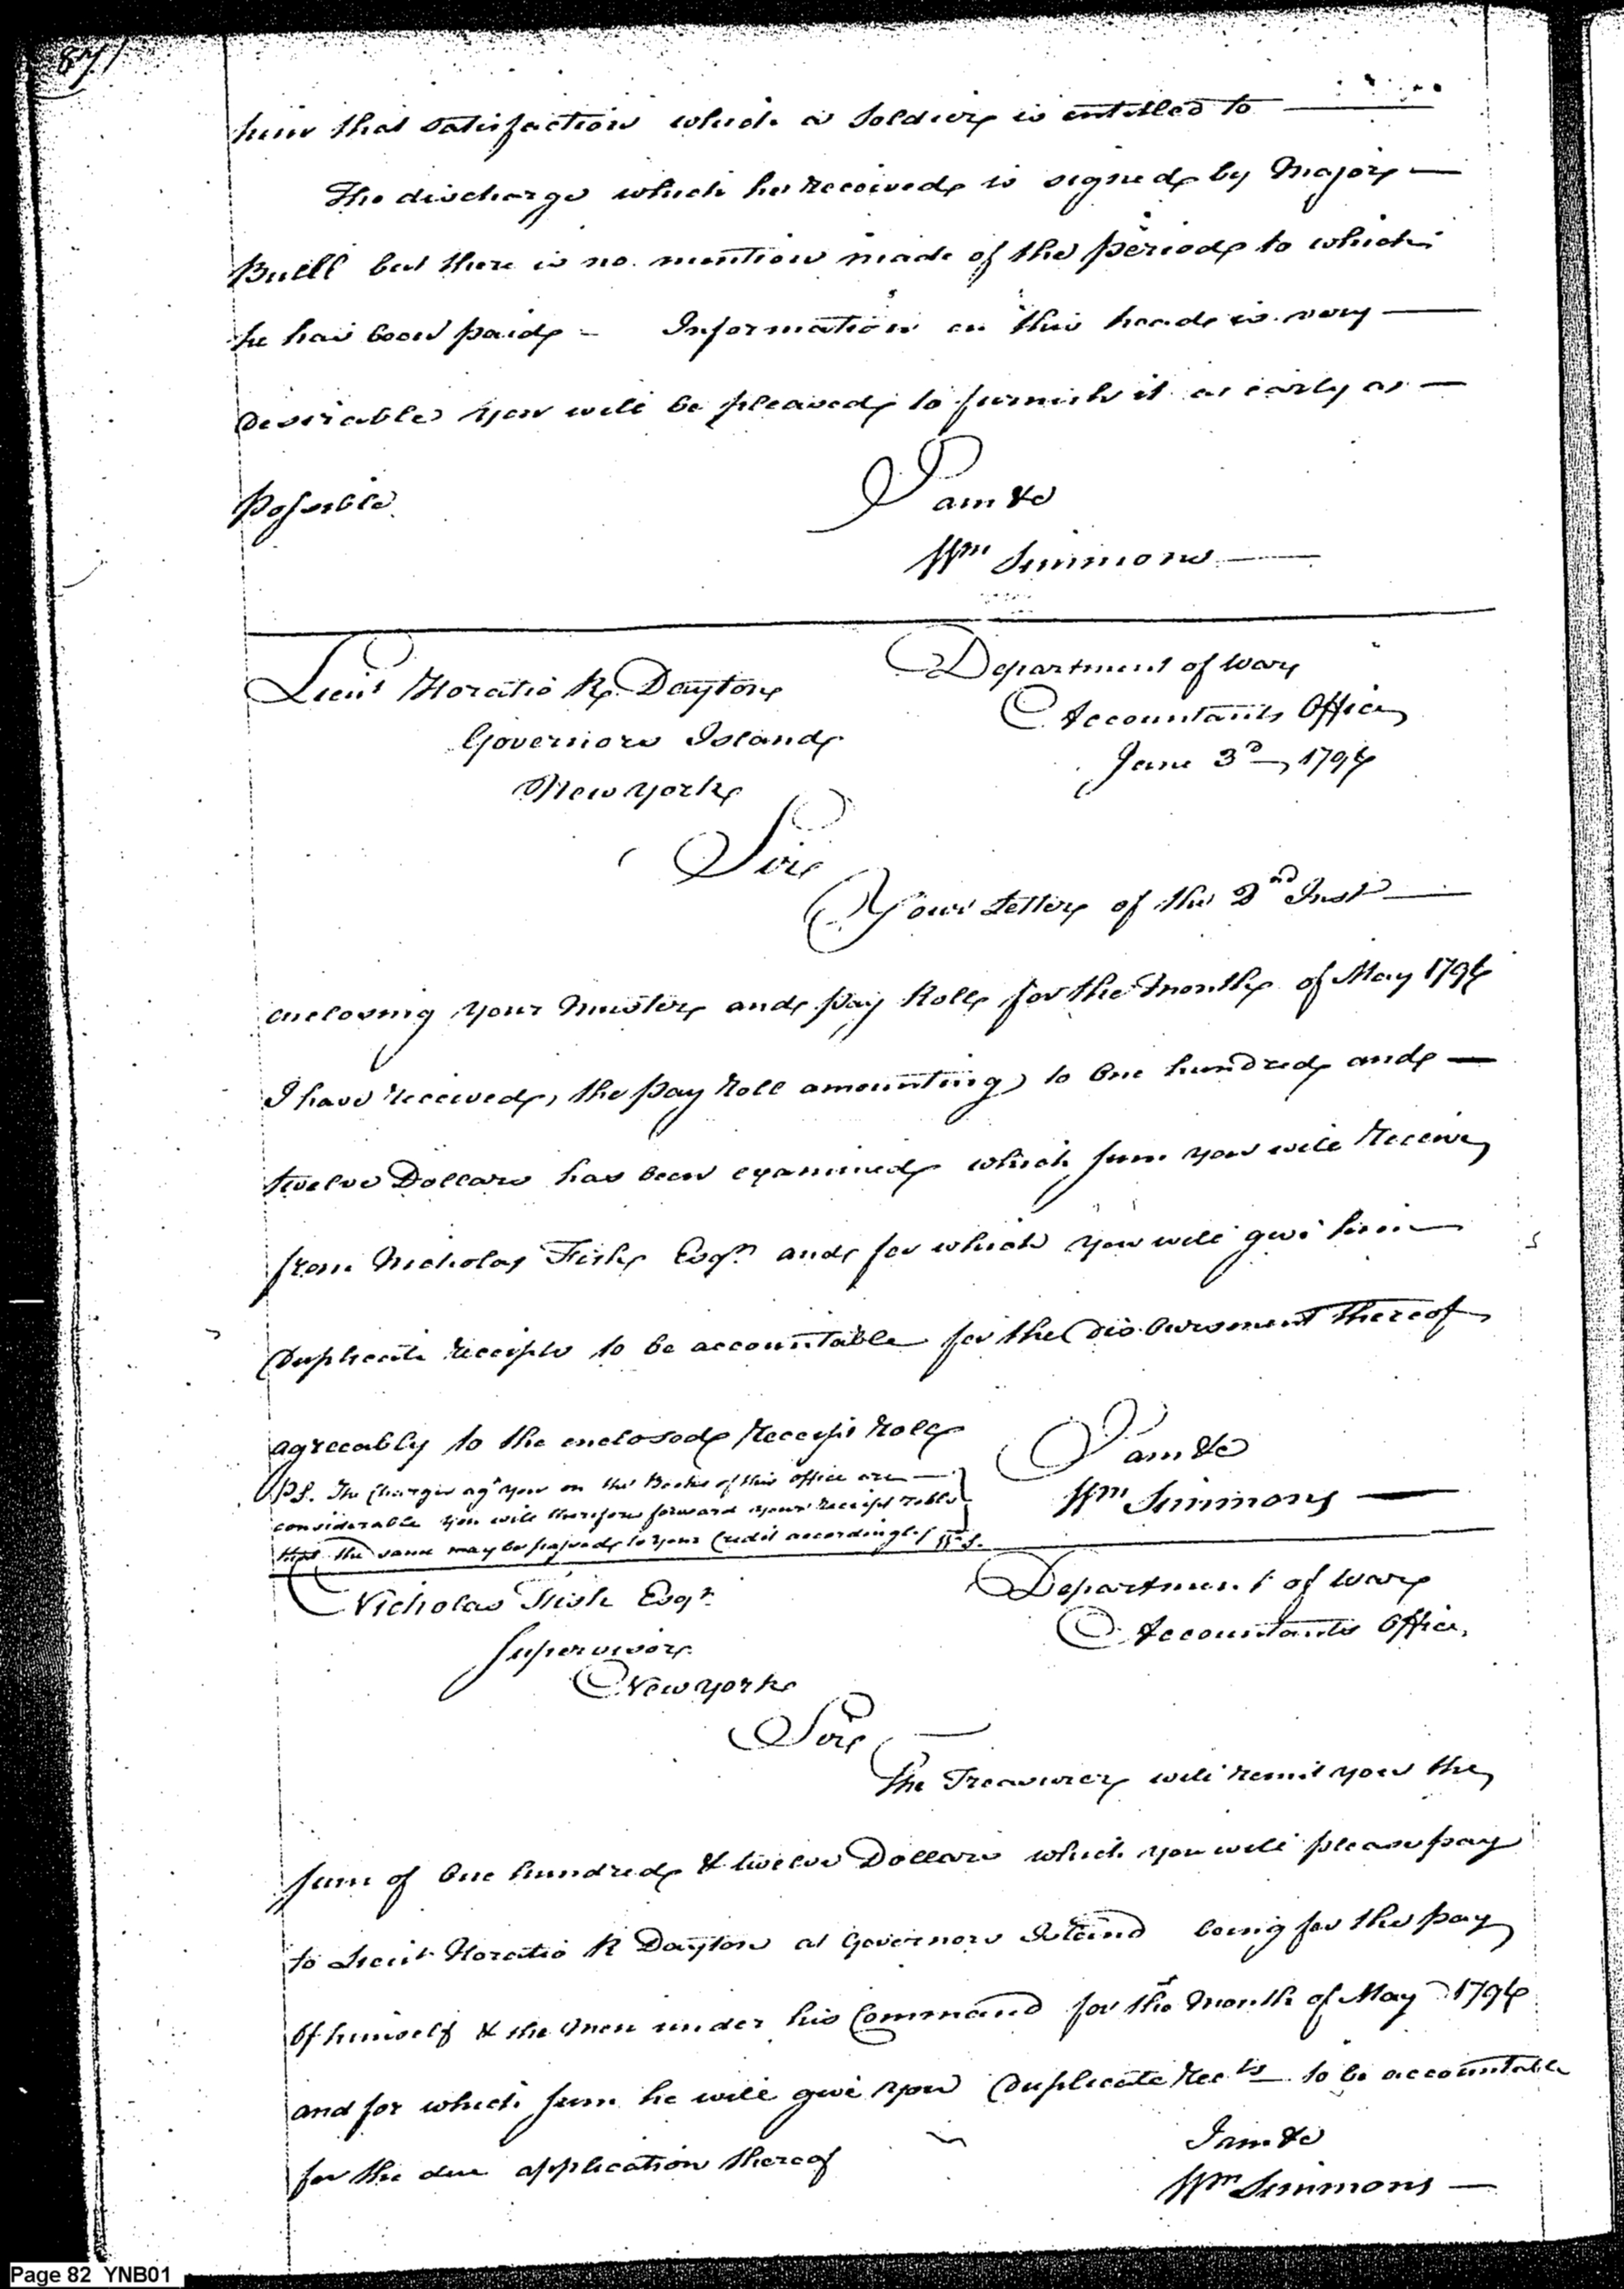 87
him that satisfaction which a Soldier is entitled to
The discharge which he received is signed by Major
Buell but there is no mention made of the period to which
he has been paid - Information on this head is very
desirable you will be pleased to furnish it as early as
Possible
I am &c
Wm Simmons
Lieut Horatio R. Dayton
Governors Island
New York
Department of War
Accountants Office
June 3d 1794
Sir
Your Letter of the 2nd Inst
enclosing your Muster and pay Roll for the Month of May 1794
I have received, the pay Roll amounting to One hundred and
twelve Dollars has been examined which sum you will receive
from Nicholas Fish Esqr and for which you will give him
Duplicate receipts to be accountable for the Disbursement thereof
agreeably to the enclosed Receipt Roll
I am &c
Wm Simmons
PS. The Charges agt you on the Books of this office are
considerable you will therefore forward your receipt rolls
that the same may be passed to your Credit accordingly W.S.
Nicholas Fish Esqr
Supervisor
New York
Department of War
Accountants Office
Sir
The Treasurer will remit you the
sum of One hundred & twelve Dollars which you will please pay
to Lieut Horatio R Dayton at Governors Island being for the pay
Of himself & the Men under his Command for the Month of May 1794
and for which sum he will give you Duplicate Rec'ts to be accountable
for the due application thereof
I am &c
Wm Simmons
Page 82 YNB01